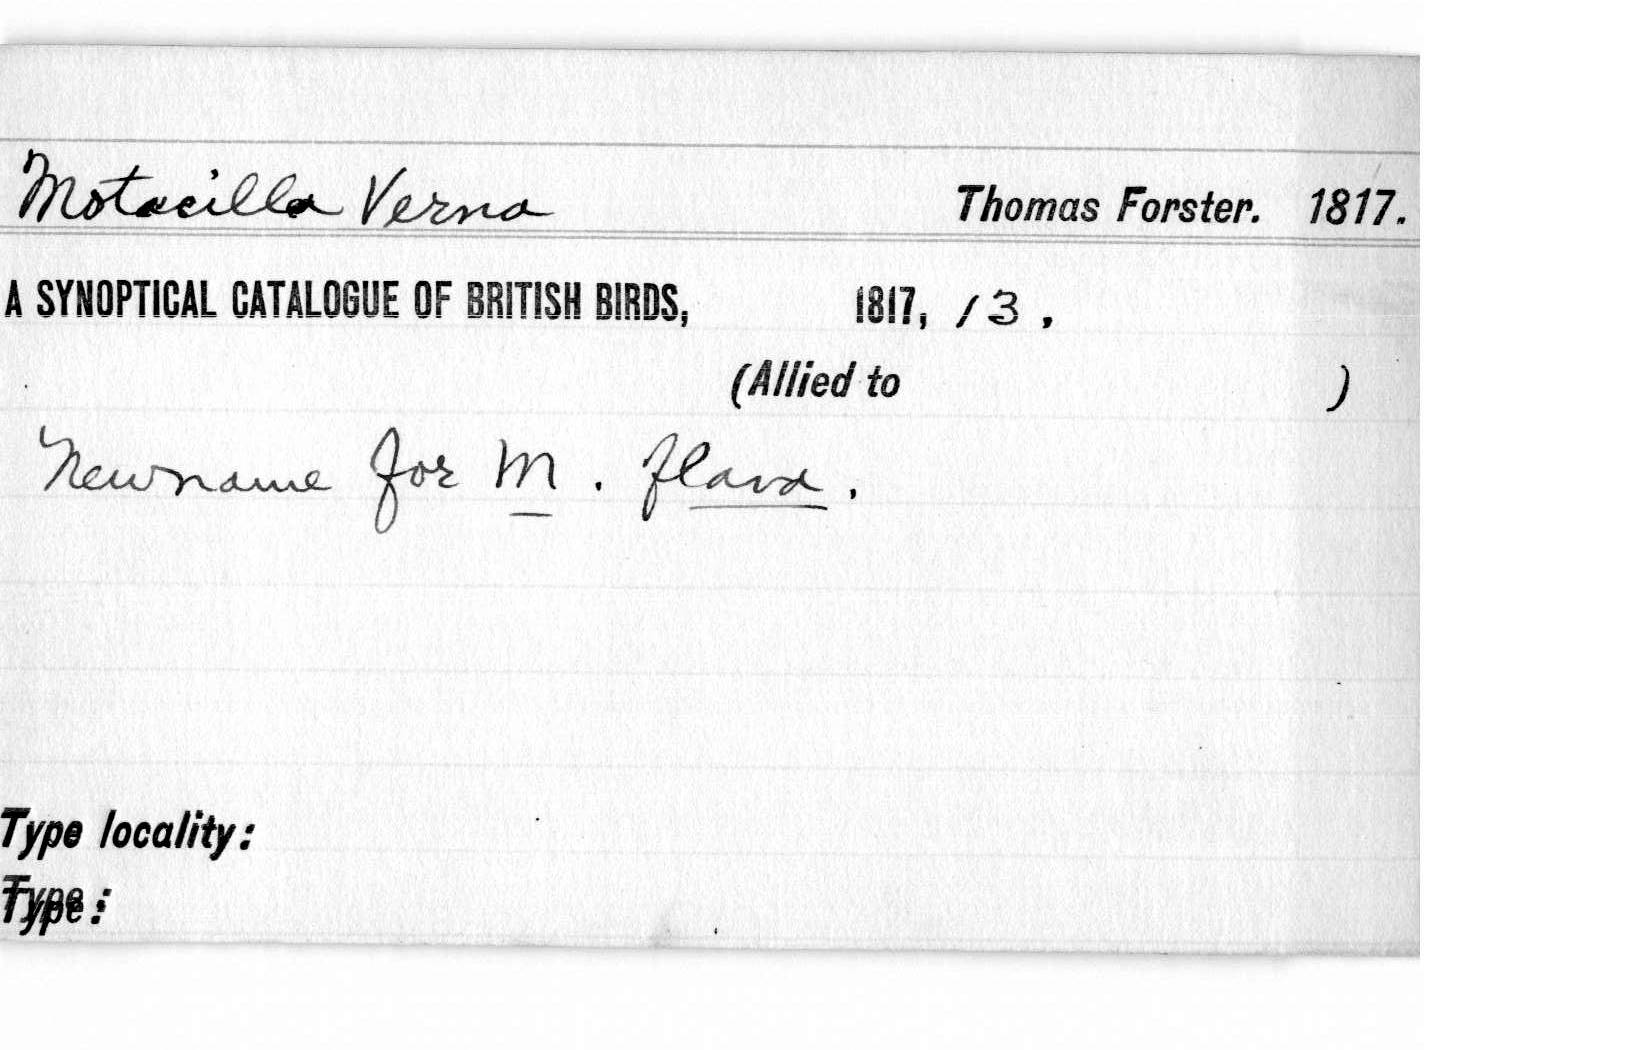 Motacilla Verna Thomas Forster. 1817.
A SYNOPTICAL CATALOGUE OF BRITISH BIRDS, 1817, 13.
(Allied to )
New name for M. flava.
Type locality:
Type: